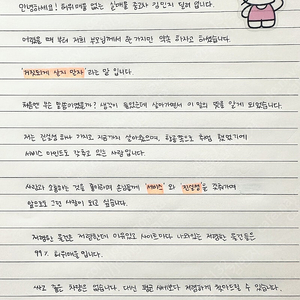 안녕하세요! 허위매물 없는 실매물 중고차 김민지 딜러 입니다.
어렸을 때 부터 저희 부모님께서 한 가지만 약속 하자고 하셨습니다.
'거짓되게 살지 말자' 라는 말 입니다.
처음엔 무슨 말씀이었을까? 생각이 들었는데 살아가면서 이 말의 뜻을 알게 되었습니다.
저는 진실성 하나 가지고 지금까지 살아왔으며, 항공쪽으로 취업 했었기에
서비스 마인드도 갖추고 있는 사람입니다.
사람과 소통하는 것을 좋아하며 손님들께 '서비스' 와 '진실성'을 갖춰가며
앞으로도 그런 사람이 되고 싶습니다.
저렴한 물건은 저렴한데 이유있고 사이트마다 나와있는 저렴한 물건들은
99% 허위매물 입니다.
싸고 좋은 차량은 없습니다. 대신 평균 시세보다 저렴하게 찾아드릴 수 있습니다.